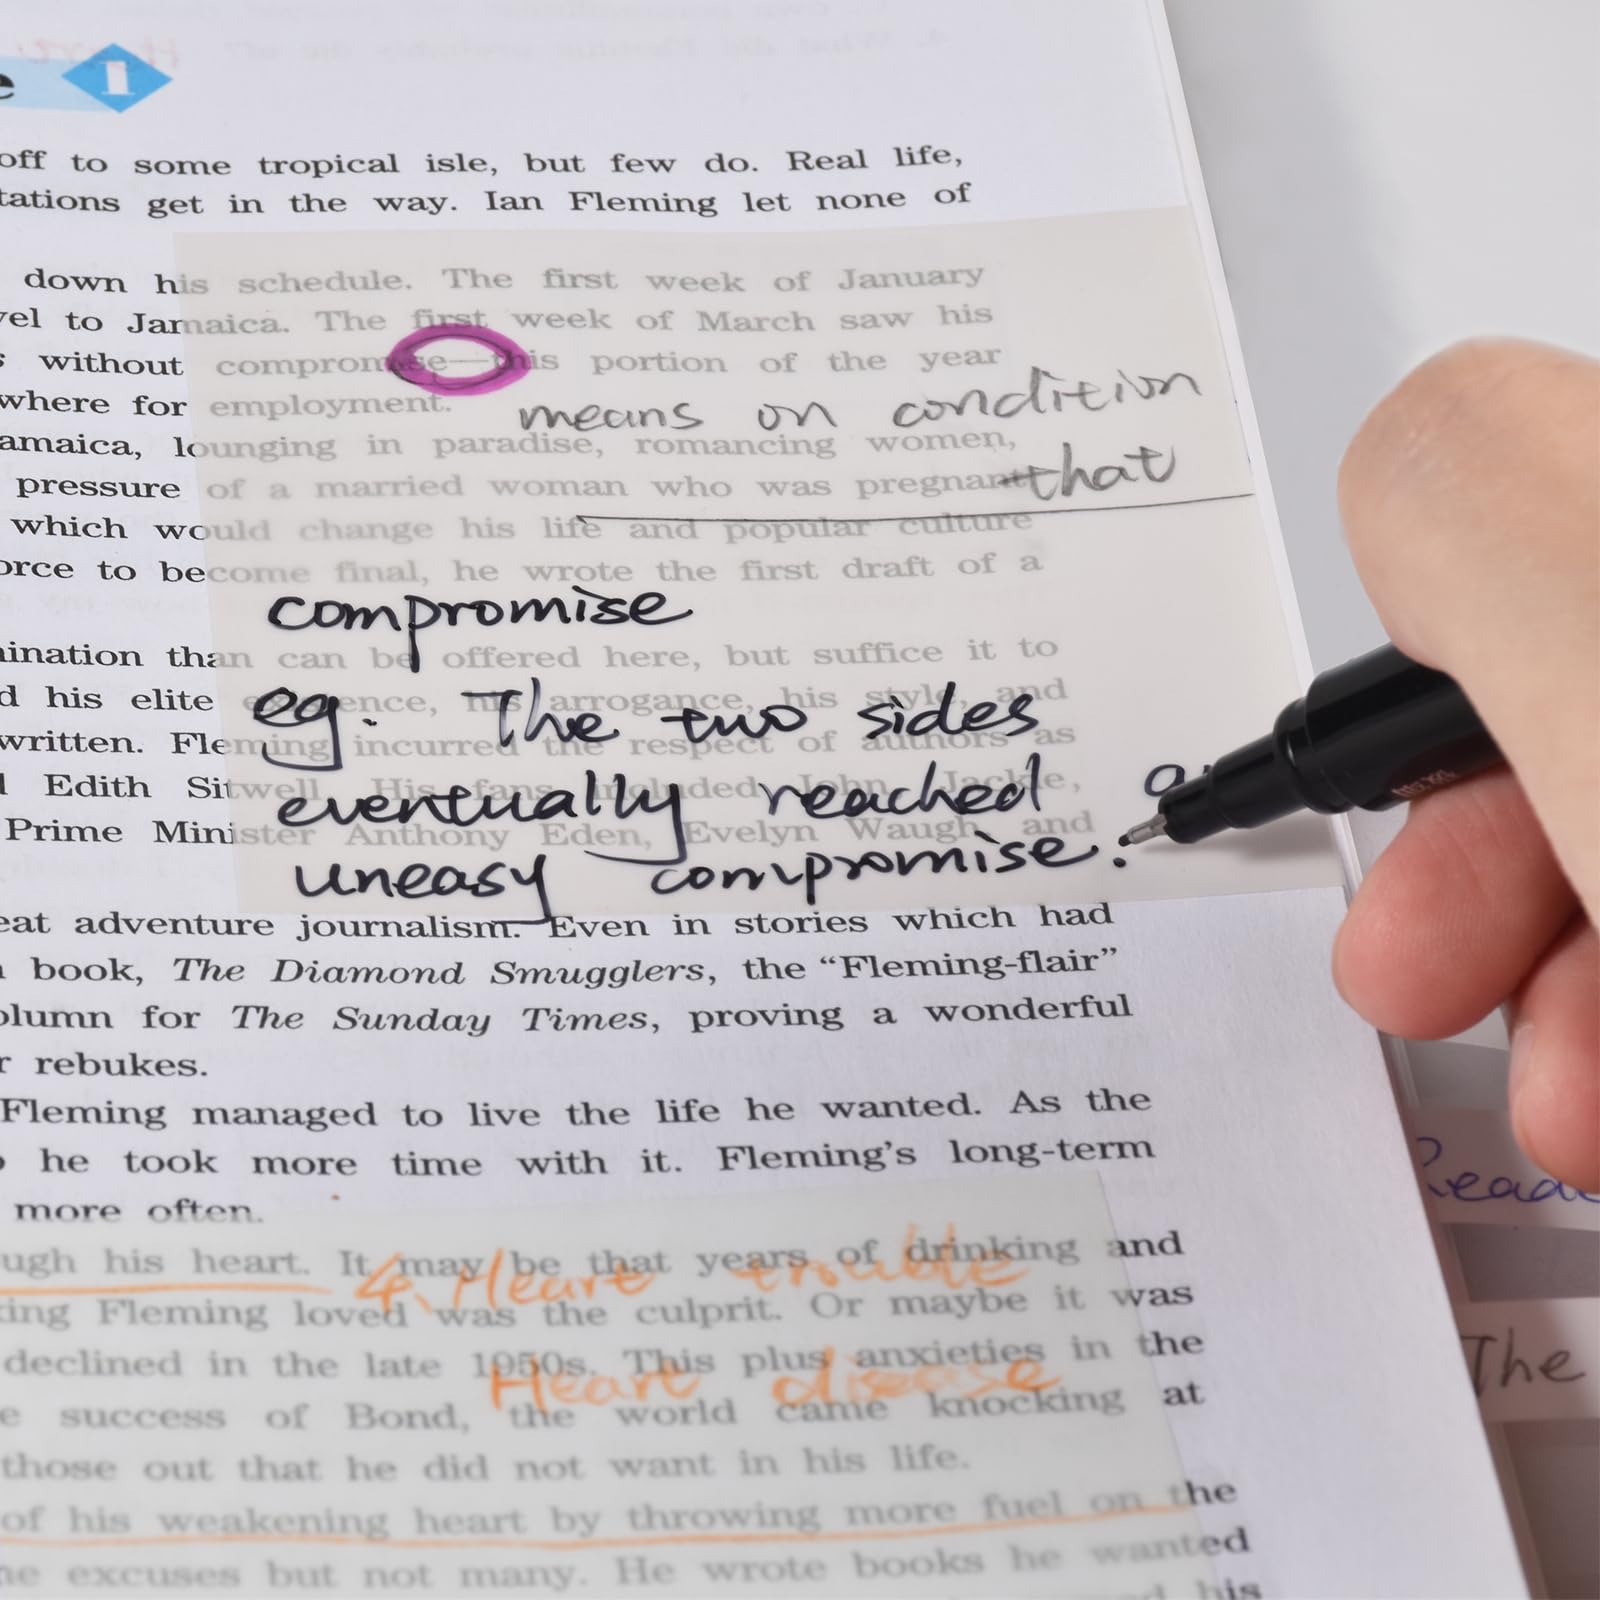 e I
off to some tropical isle, but few do. Real life,
tations get in the way. Ian Fleming let none of
down his schedule. The first week of January
vel to Jamaica. The first week of March saw his
s without compromise—this portion of the year
where for employment.
means on condition
amaica, lounging in paradise, romancing women,
pressure of a married woman who was pregnant
that
which would change his life and popular culture
orce to become final, he wrote the first draft of a
compromise
ination than can be offered here, but suffice it to
d his elite existence, his arrogance, his style, and
eg. The two sides
written. Fleming incurred the respect of authors as
l Edith Sitwell. His fans included John, Jackie,
eventually reached a
Prime Minister Anthony Eden, Evelyn Waugh and
uneasy compromise.
eat adventure journalism. Even in stories which had
book, The Diamond Smugglers, the “Fleming-flair”
olumn for The Sunday Times, proving a wonderful
r rebukes.
Fleming managed to live the life he wanted. As the
he took more time with it. Fleming's long-term
more often.
ugh his heart. It may be that years of drinking and
4. Heart trouble
king Fleming loved was the culprit. Or maybe it was
declined in the late 1950s. This plus anxieties in the
Heart disease
e success of Bond, the world came knocking at
those out that he did not want in his life.
of his weakening heart by throwing more fuel on the
ne excuses but not many. He wrote books he wanted
his
Read
The